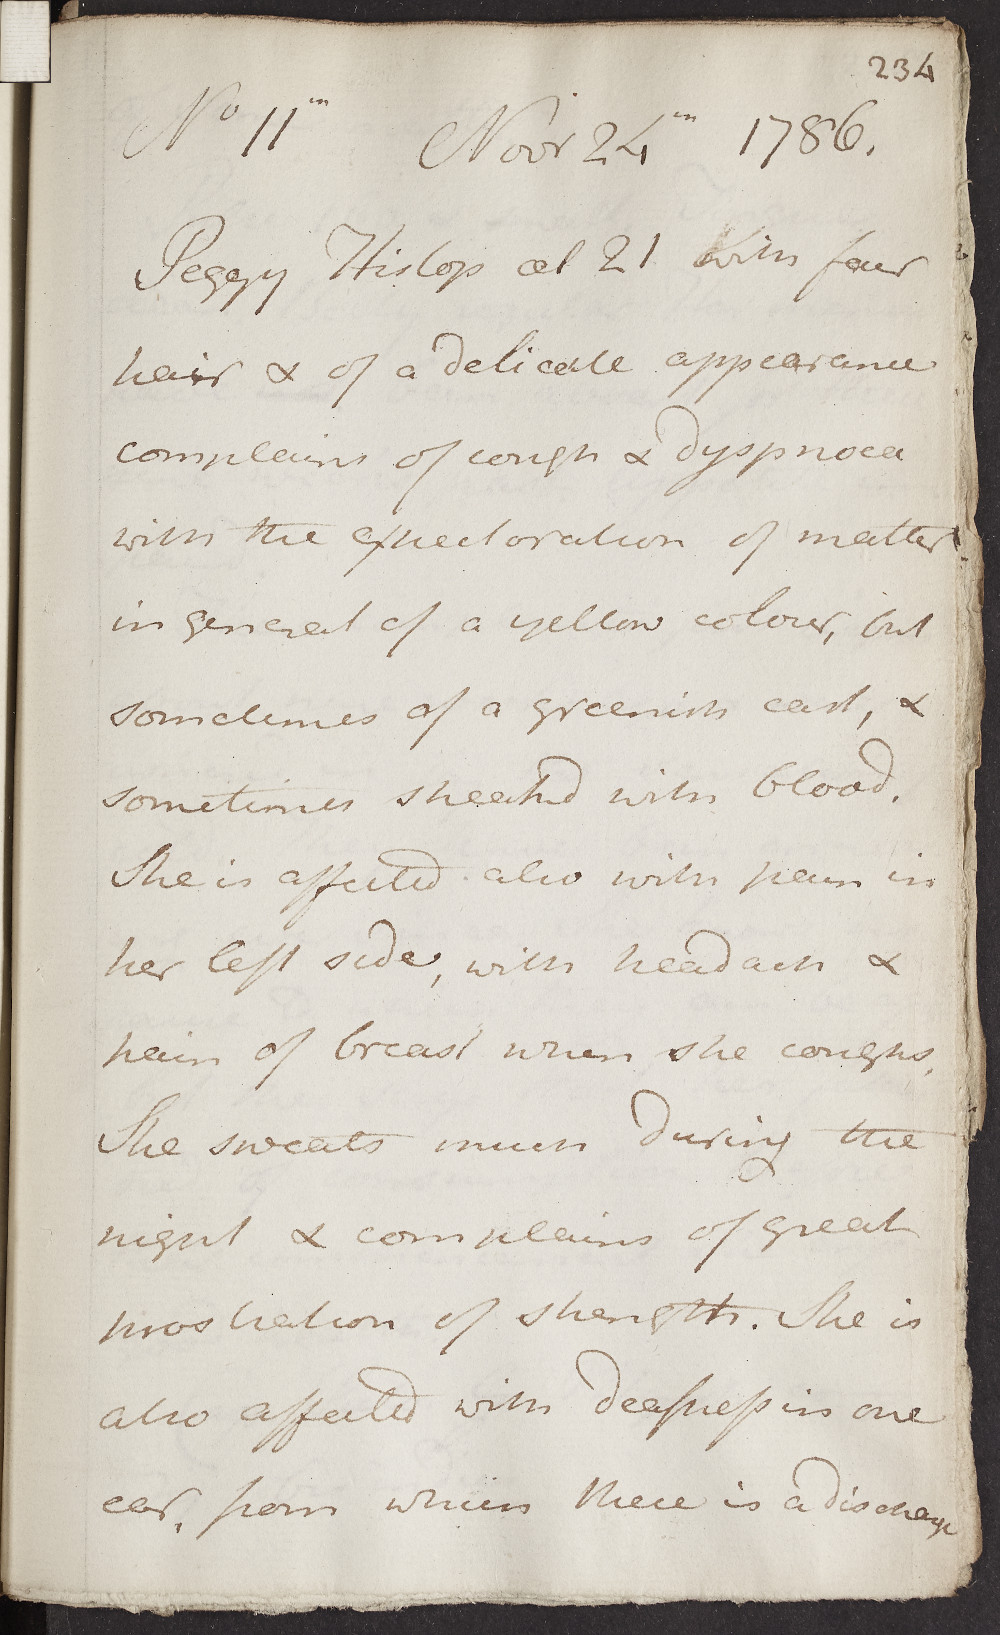 234
No 11th Novr 24th 1786.
Peggy Hislop æt 21 with fair
hair & of a delicate appearance
complains of cough & dyspnoea
with the expectoration of matter
in general of a yellow colour, but
sometimes of a greenish cast, &
sometimes streaked with blood.
She is affected also with pain in
her left side, with headach &
pain of breast when she coughs.
She sweats much during the
night & complains of great
prostration of strength. She is
also affected with deafness in one
ear, from which there is a discharge